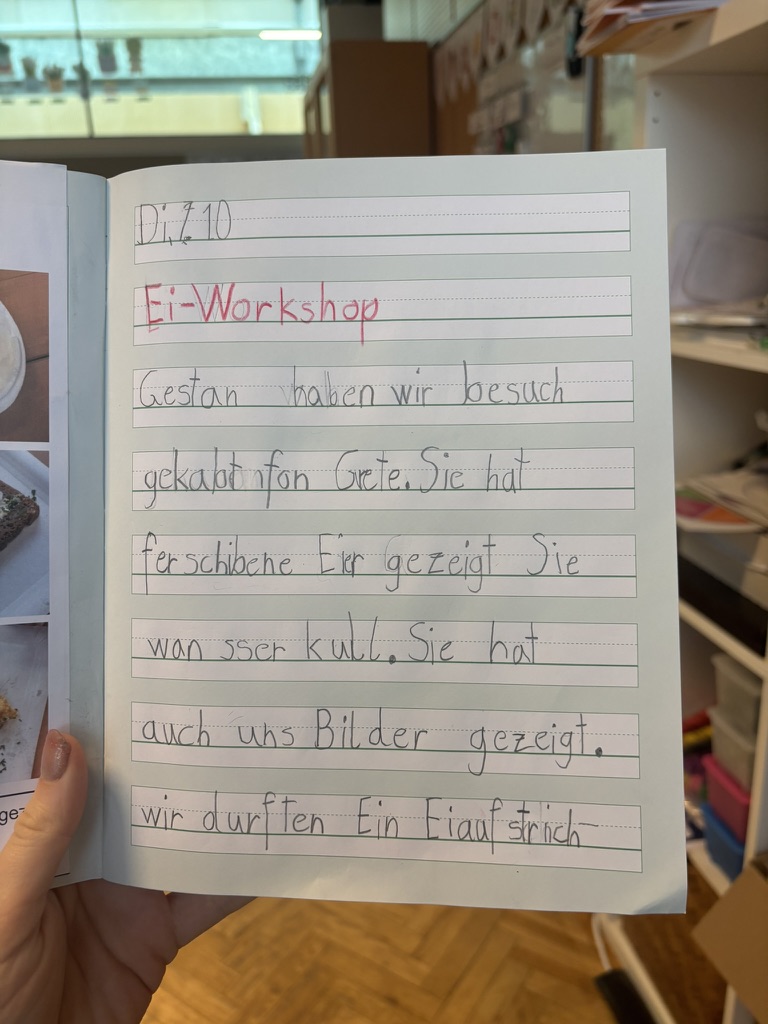 Di, 7.10
Ei-Workshop
Gestan haben wir besuch
gekabt fon Grete. Sie hat
ferschibene Eier gezeigt Sie
wan sser kull. Sie hat
auch uns Bilder gezeigt.
wir durften Ein Eiaufstrich-
gez